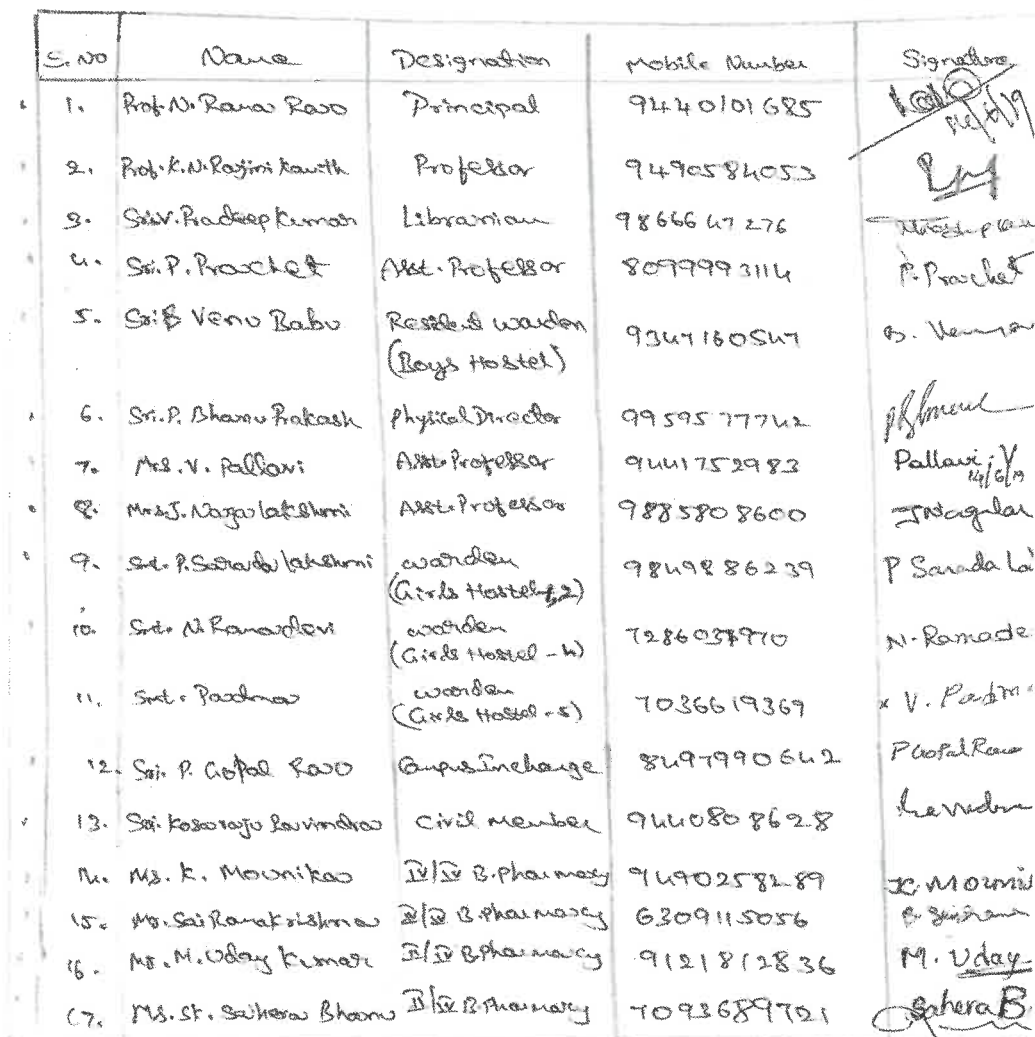 S. No Name Designation Mobile Number Signature
1. Prof. N. Rama Rao Principal 9440101685
2. Prof. K. N. Rajini Kanth Professor 9490584053
3. Sri. V. Pradeep Kumar Librarian 9866647276
4. Sri. P. Prachet Asst. Professor 8099993114 P. Prachet
5. Sri B Venu Babu Resident warden 9347160547 B. Venu
(Boys Hostel)
6. Sri. P. Bhanu Prakash Physical Director 9959577742
7. Mrs. V. Pallavi Asst. Professor 9441752983 Pallavi. V
14/6/19
8. Mrs. J. Nagalakshmi Asst. Professor 9885808600 J Nagalak
9. Smt. P. Sarada lakshmi warden 9849886239 P Sarada La
(Girls Hostel 1,2)
10. Smt. N. Ramadevi warden 7286038970 N. Ramade
(Girls Hostel - 4)
11. Smt. Padma warden 7036619369 x V. Padm
(Girls Hostel - 5)
12. Sri. P. Gopal Rao Campus Incharge 8497990642 P Gopal Rao
13. Sri. Kosaraju Ravindra Civil Member 9440808628 Ravindra
14. Ms. K. Mounika IV/IV B. Pharmacy 9490258289 K. Mouni
15. Mr. Sai Ramakrishna B. Pharmacy 6309115056
16. Mr. M. Uday Kumar B Pharmacy 9121812836 M. Uday
17. Ms. Sk. Sahera Bhanu B. Pharmacy 7093689721 Sahera B